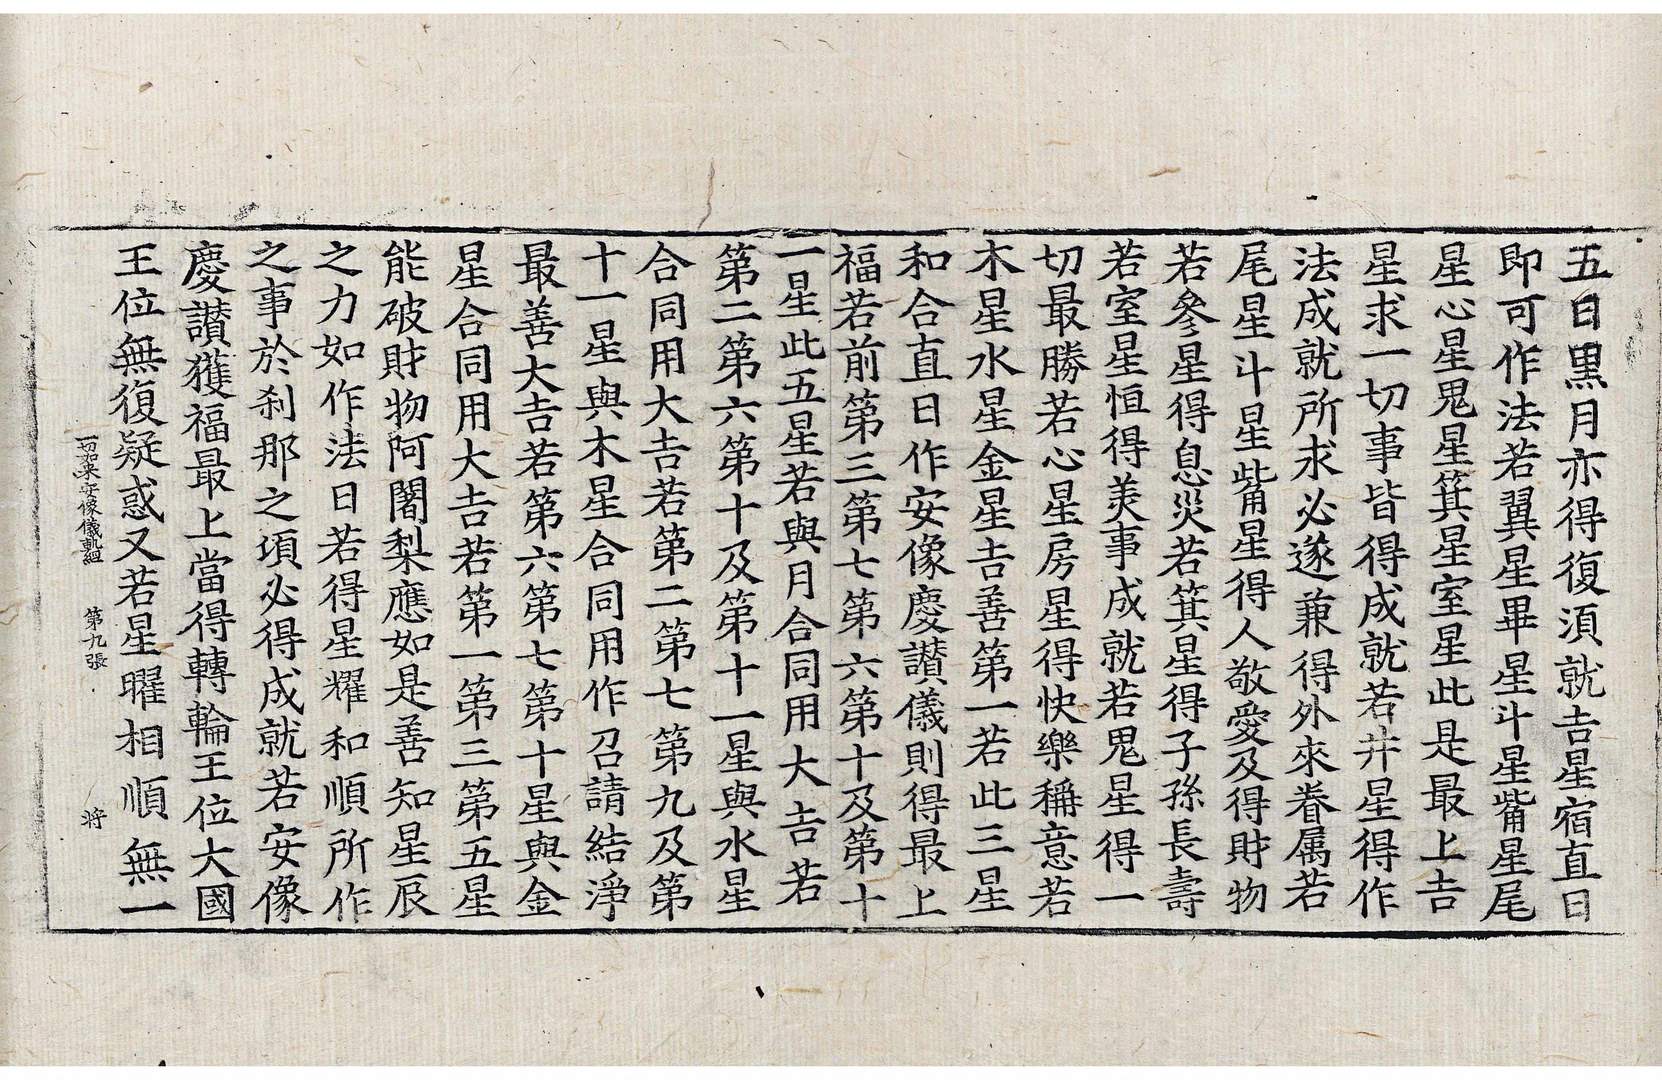 五日黑月亦得復須就吉星宿直日
即可作法若翼星畢星斗星觜星尾
星心星鬼星箕星室星此是最上吉
星求一切事皆得成就若井星得作
法成就所求必遂兼得外來眷属若
尾星斗星觜星得人敬愛及得財物
若參星得息災若箕星得子孫長壽
若室星恒得羙事成就若鬼星得一
切最勝若心星房星得快樂稱意若
木星水星金星吉善第一若此三星
和合直日作安像慶讃儀則得最上
福若前第三第七第六第十及第十
一星此五星若與月合同用大吉若
第二第六第十及第十一星與水星
合同用大吉若第二第七第九及第
十一星與木星合同用作召請結淨
最善大吉若第六第七第十星與金
星合同用大吉若第一第三第五星
能破財物阿闍梨應如是善知星辰
之力如作法日若得星耀和順所作
之事於刹那之頃必得成就若安像
慶讃獲福最上當得轉輪王位大國
王位無復疑惑又若星曜相順無一
一切如来安像儀軌經 第九張 将